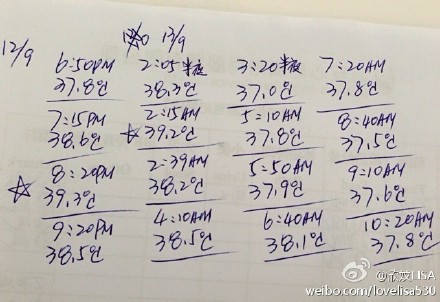 12/9
6:50PM
37.8℃
7:15PM
38.6℃
☆ 8:20PM
39.3℃
9:20PM
38.5℃
13/9
2:05半夜
38.3℃
☆ 2:15AM
39.2℃
2:39AM
38.2℃
4:10AM
38.5℃
3:20半夜
37.0℃
5:10AM
37.8℃
5:50AM
37.9℃
6:40AM
38.1℃
7:20AM
37.8℃
8:40AM
37.5℃
9:10AM
37.6℃
10:20AM
37.8℃
weibo.com/lovelisa530